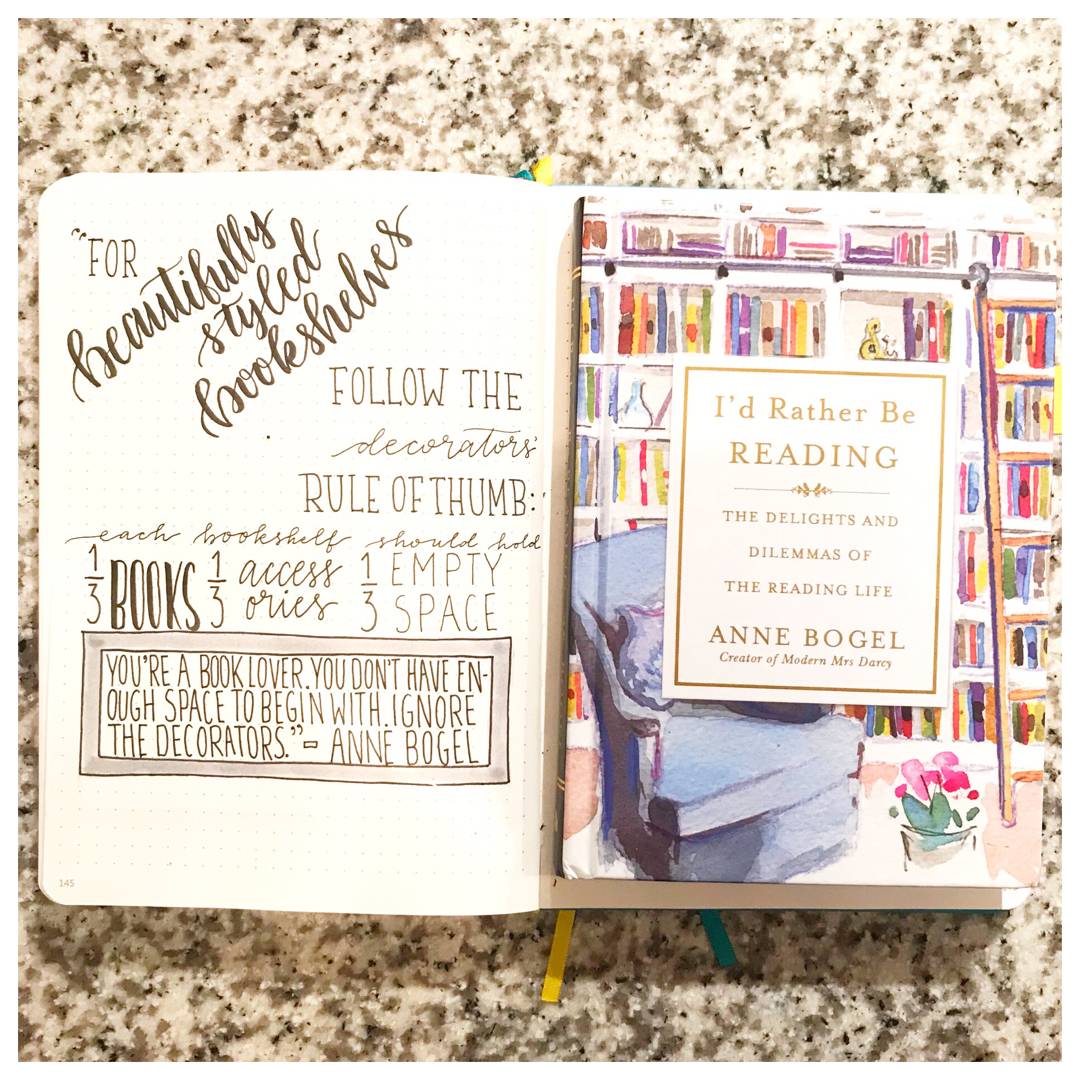 "FOR
beautifully
styled
bookshelves
FOLLOW THE
decorators'
RULE OF THUMB:
each bookshelf should hold
1/3 BOOKS 1/3 access
ories 1/3 EMPTY
SPACE
YOU'RE A BOOK LOVER. YOU DON'T HAVE EN-
OUGH SPACE TO BEGIN WITH. IGNORE
THE DECORATORS." - ANNE BOGEL
145
I'd Rather Be
READING
THE DELIGHTS AND
DILEMMAS OF
THE READING LIFE
ANNE BOGEL
Creator of Modern Mrs Darcy